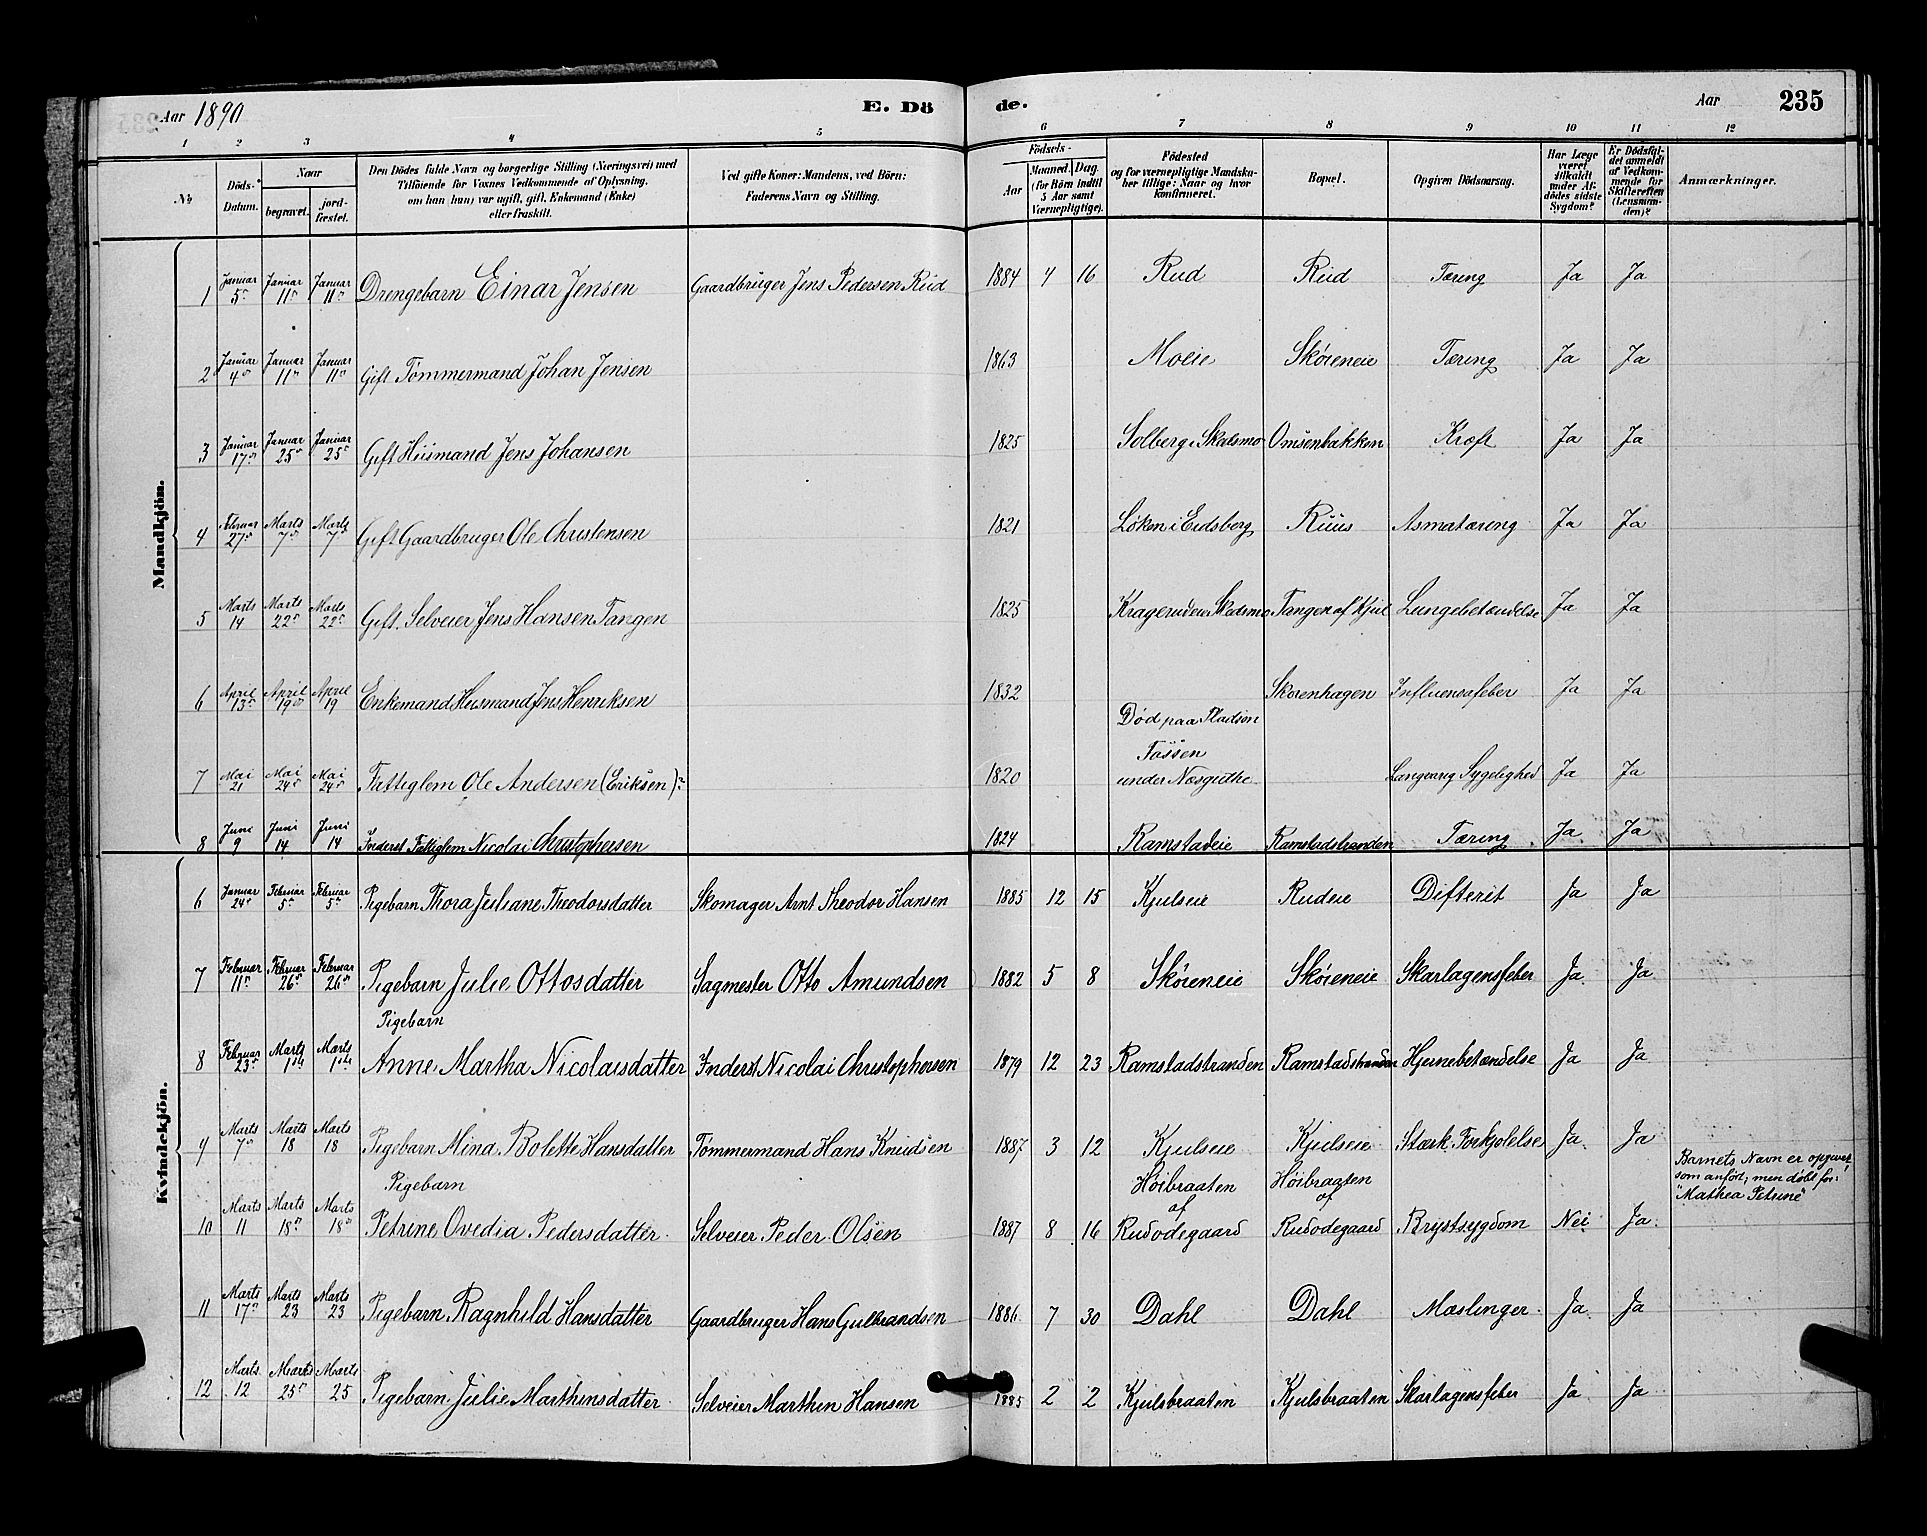 Aar 1890 E. Dö de. Aar 235
1 2 3 4 5 6 7 8 9 10 11 12
№ Döds-Datum. Naar begravet. jord-fæstet. Den Dödes fulde Navn og borgerlige Stilling (Næringsvei) med Tilföiende for Voxnes Vedkommende af Oplysning, om han (hun) var ugift, gift, Enkemand (Enke) eller fraskilt. Ved gifte Koner: Mandens, ved Börn: Faderens Navn og Stilling. Födsels- Aar Maaned. Dag. (for Börn indtil 5 Aar samt Værnepligtige). Födested og for værnepligtige Mandskaber tillige: Naar og hvor konfirmeret. Bopæl. Opgiven Dödsaarsag. Har Læge været tilkaldt under Afdödes sidste Sygdom? Er Dödsfaldet anmeldt af Vedkommende for Skifteretten (Lensmanden)? Anmærkninger.
Mandkjön.
1 Januar 5 Januar 11 Januar 11 Drengebarn Einar Jensen Gaardbruger Jens Pedersen Rud 1884 4 16 Rud Rud Tæring Ja Ja
2 Januar 4 Januar 11 Januar 11 Gift Tømmermand Johan Jensen 1863 Moeie Skøieneie Tæring Ja Ja
3 Januar 17 Januar 25 Januar 25 Gift Husmand Jens Johansen 1825 Solberg i Skedsmo Onsenbakken Kræft Ja Ja
4 Februar 27 Marts 7 Marts 7 Gift Gaardbruger Ole Christensen 1821 Løken i Eidsberg Ruus Asmatæring Ja Ja
5 Marts 14 Marts 22 Marts 22 Gift. Selveier Jens Hansen Tangen 1825 Kragerudeie Skedsmo Tangen af Kjul Lungebetændelse Ja Ja
6 April 13 April 19 April 19 Enkemand Husmand Jens Henriksen 1832 Skøienhagen Influensafeber Ja Ja
Død paa Pladsen
Tøssen
7 Mai 21 Mai 24 Mai 24 Fattiglem Ole Andersen (Eriksen) 1820 under Næsgüthe Langvarig Sygelighed Ja Ja
8 Juni 9 Juni 14 Juni 14 Inderst Fattiglem Nicolai Christophersen 1824 Ramstadeie Ramstadstranden Tæring Ja Ja
Kvindekjön.
6 Januar 24 Februar 5 Februar 5 Pigebarn Thora Juliane Theodorsdatter Skomager Arnt Theodor Hansen 1885 12 15 Kjulseie Rudeie Difterit Ja Ja
7 Februar 11 Februar 26 Februar 26 Pigebarn Julie Ottosdatter Sagmester Otto Amundsen 1882 5 8 Skøieneie Skøieneie Skarlagensfeber Ja Ja
Pigebarn
8 Februar 23 Marts 1ste Marts 1ste Anne Martha Nicolaisdatter Inderst Nicolai Christophersen 1879 12 23 Ramstadstranden Ramstadstranden Hjernebetændelse Ja Ja
9 Marts 7 Marts 18 Marts 18 Pigebarn Mina Bolette Hansdatter Tømmermand Hans Knudsen 1887 3 12 Kjulseie Kjulseie Stærk Forkjølelse Ja Ja
Pigebarn Høibraaten af Høibraaten af Barnets Navn er opgivet som anført; men døbt for: "Mathea Petrine"
10 Marts 11 Marts 18 Marts 18 Petrine Ovedia Pedersdatter Selveier Peder Olsen 1887 8 16 Rudødegaard Rudødegaard Brystsygdom Nei Ja
11 Marts 17 Marts 23 Marts 23 Pigebarn Ragnhild Hansdatter Gaardbruger Hans Gulbrandsen 1886 7 30 Dahl Dahl Mæslinger Ja Ja
12 Marts 12 Marts 25 Marts 25 Pigebarn Julie Marthinsdatter Selveier Marthin Hansen 1885 2 2 Kjulsbraaten Kjulsbraaten Skarlagensfeber Ja Ja